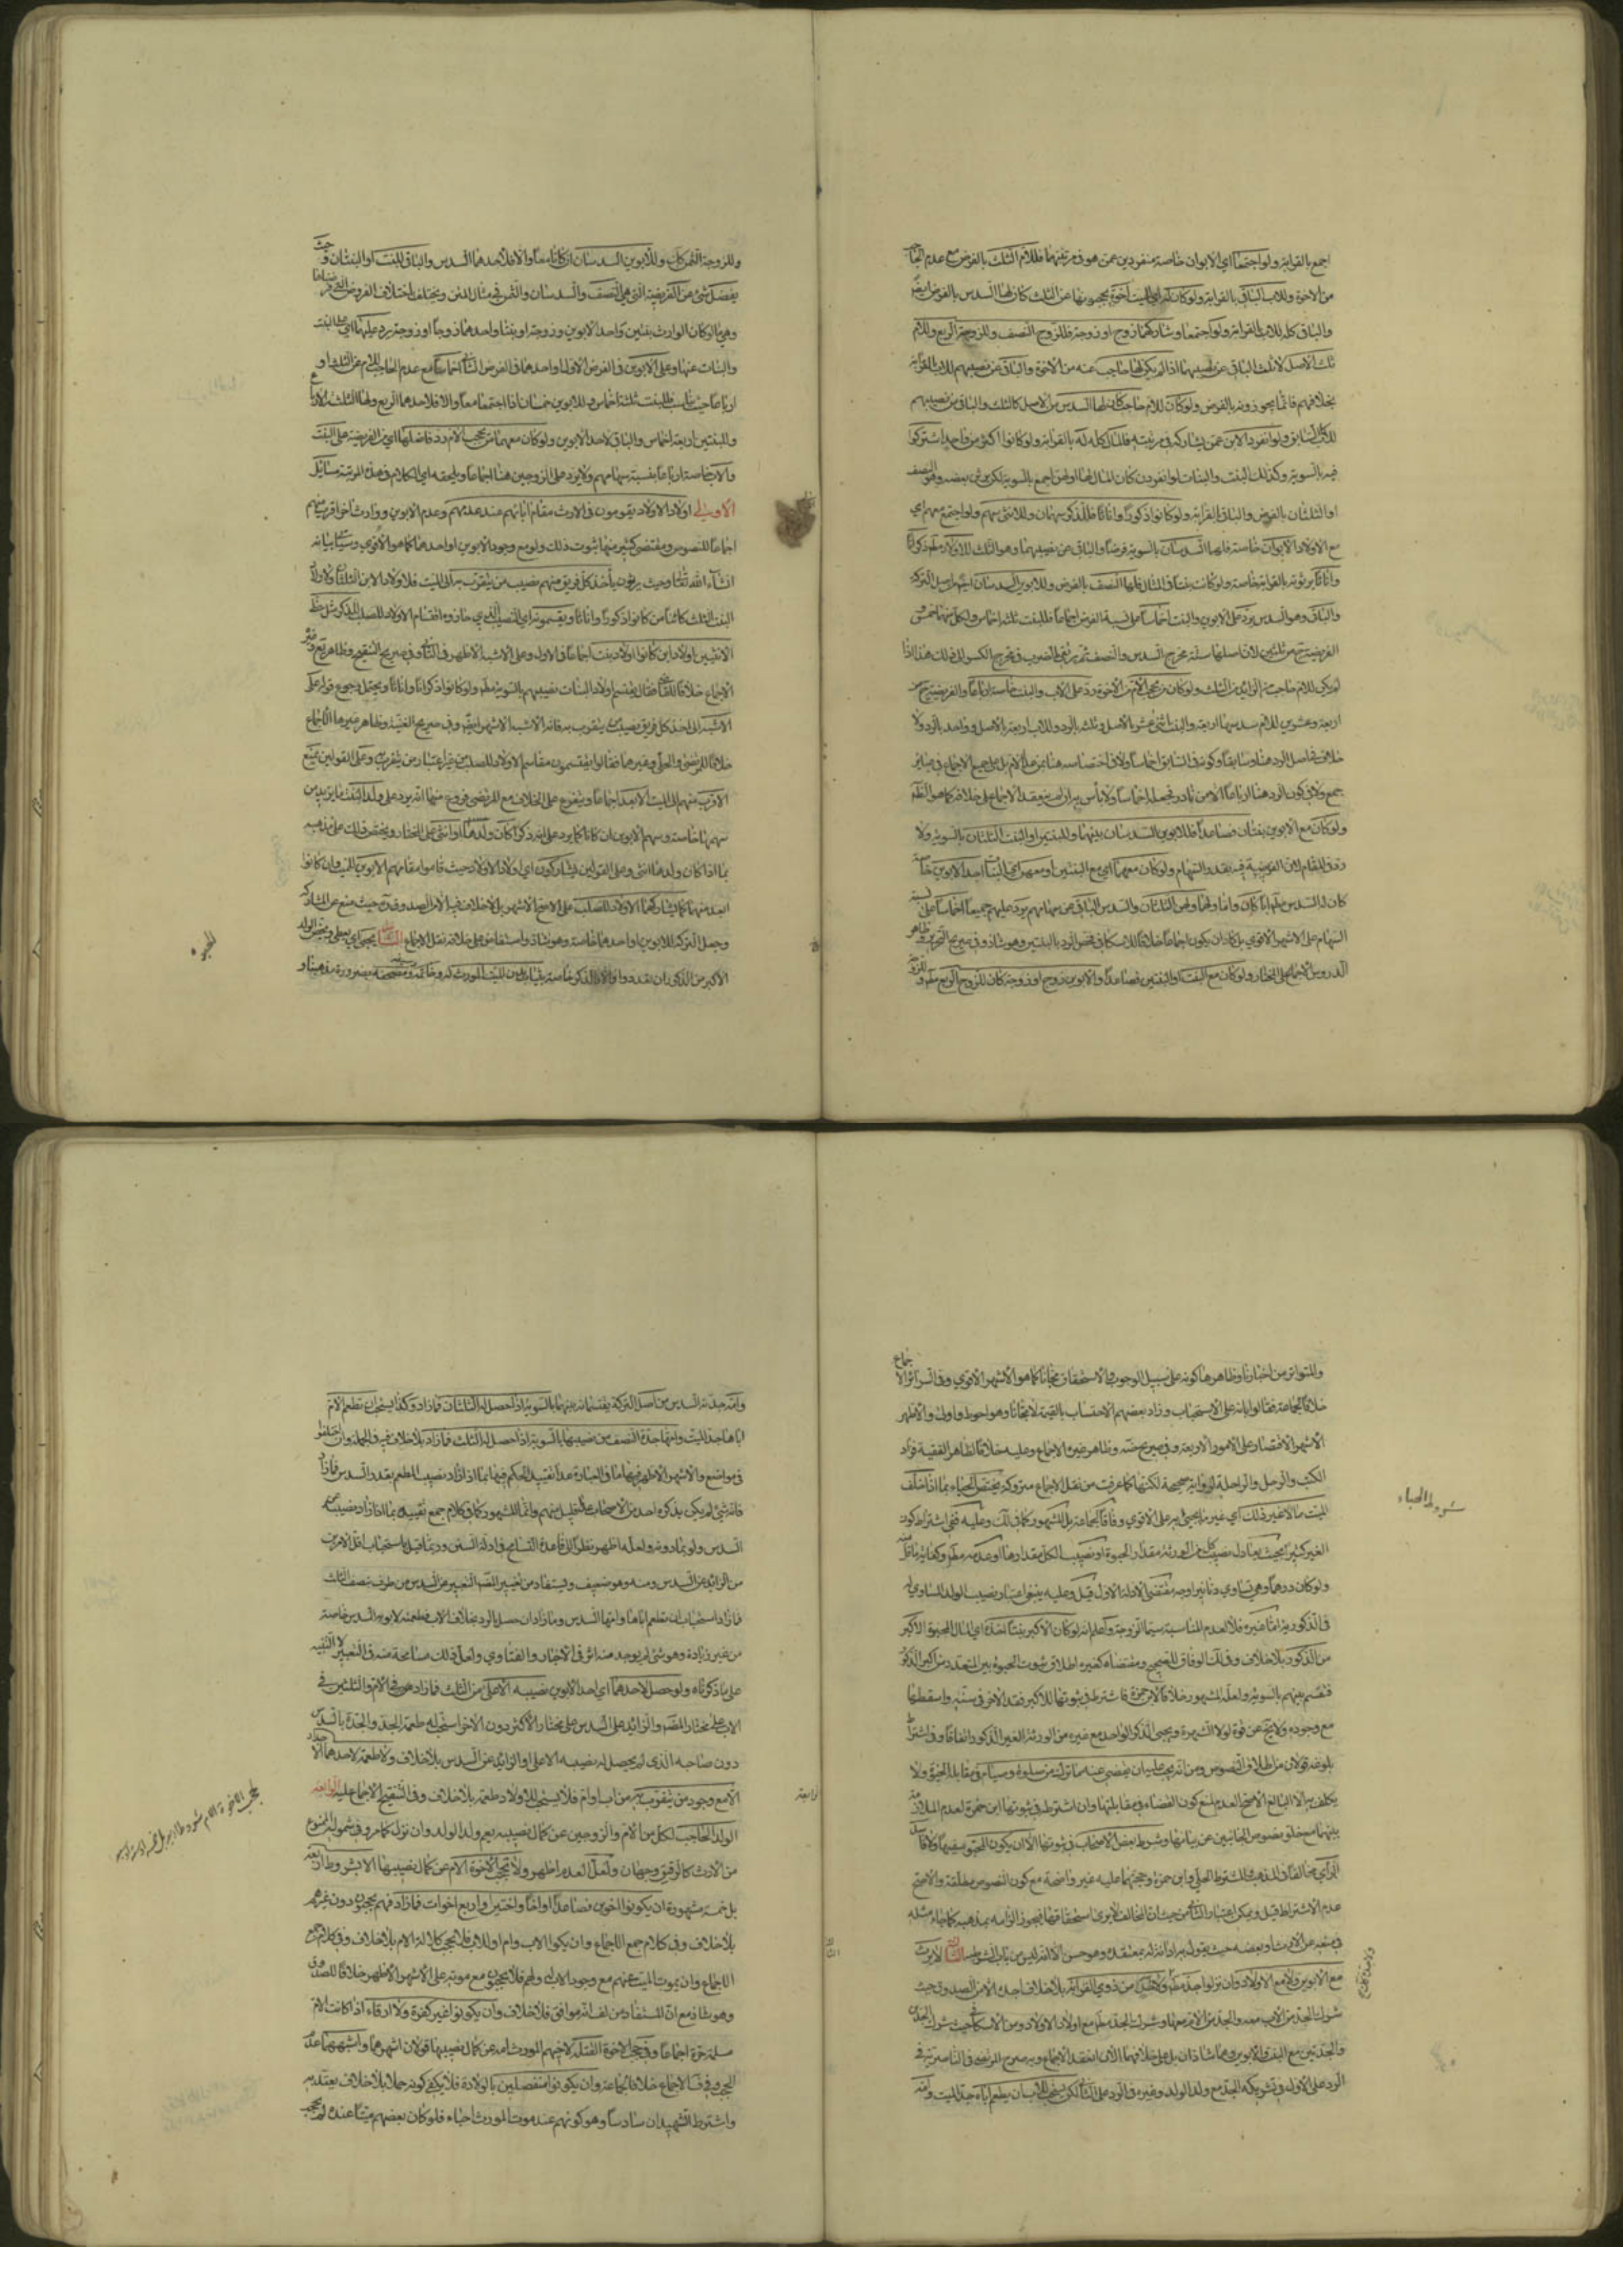 اجمع بالقرابة ولو اجتمعا اي الابوان خاصة منفردين عمن هو في مرتبتهما فللام الثلث بالفرض مع عدم
من الاخوة وللاب الباقي بالقرابة ولو كان اخوة يحجبونها عن الثلث كان لها السدس بالفرض ايضا
والباقي كله للاب بالقرابة ولو اجتمعا وشاركهما زوج او زوجة فللزوج النصف وللزوجة الربع وللام
ثلث الاصل لا ثلث الباقي عن نصيبهما اذا لم يكن لها حاجب عنه من الاخوة والباقي عن نصيبهم للاب بالقرابة
بخلافهم فانما يحوزونه بالفرض ولو كان للام حاجب كان لها السدس من الاصل كالثلث والباقي من نصيبهم
للاب ولو انفرد الابن عمن يشاركه في مرتبته فالمال كله له بالقرابة ولو كانوا اكثر من واحد اشتركوا
فيه بالسوية وكذلك البنت والبنات لو انفردن كان المال لها او لهن اجمع بالسوية لكن يرثن بعضه وهو النصف
او الثلثان بالفرض والباقي بالقرابة ولو كانوا ذكورا واناثا فللذكر سهمان وللانثى سهم ولو اجتمع معهم اي
مع الاولاد الابوان خاصة فلهما السدسان بالسوية فرضا والباقي عن نصيبهما وهو الثلث للاولاد مطلقا ذكورا
واناثا يرثونه بالقرابة خاصة ولو كانت بنتا في المثال فلها النصف بالفرض وللابوين السدسان ايضا من اصل التركة
والباقي وهو السدس يرد على الابوين والبنت اخماسا على نسبة الفرض اجماعا فللبنت ثلثة اخماس ولكل منهما خمس
الفريضة من ثلثين لان اصلها ستة مخرج السدس والنصف ثم يرتقي بالضرب في مخرج الكسر الى ذلك هذا اذا
لم يكن للام حاجب عن الزايد من الثلث ولو كان من يحجب الام من الاخوة رد على الاب والبنت خاصة ارباعا والفريضة من
اربعة وعشرين للام سدسها اربعة والبنت اثنى عشر بالاصل وثلثة بالرد وللاب اربعة بالاصل وواحد بالرد ولا
خلاف في اصل الرد هنا وسابقا وكونه في السابق اخماسا ولا في اختصاصه هنا بمن عدا الام بل على جميع الاجماع في عباير
جمع ولا في كون الرد هنا ارباعا الا من نادر فجعله اخماسا ولا باس به ان لم ينعقد الاجماع على خلافه كما هو الظاهر
ولو كان مع الابوين بنتان فصاعدا فللابوين السدسان بينهما وللبنتين او البنت الثلثان بالسوية ولا
رد في المقام لان الفريضة فيه بقدر السهام ولو كان معهما اي مع البنتين او معهن اي البنات احد الابوين خاصة
كان له السدس مطلقا ابا كان واما ولهما ولهن الثلثان والسدس الباقي عن سهامهم يرد عليهم جميعا اخماسا على نسبة
السهام على الاشهر الاقوى بل كاد ان يكون اجماعا خلافا للاسكافي فخص الرد بالبنتين وهو شاذ وفي صريح التحرير وظاهر
الدروس الاجماع على المختار ولو كان مع البنت او البنتين فصاعدا والابوين زوج او زوجة كان للزوج الربع مطلقا
وللزوجة الثمن كان وللابوين السدسان ان كانا معا والا فلاحدهما السدس والباقي للبنت او البنتان
يفضل شيء عن الفريضة التي هي النصف والسدسان والثمن في مثال المتن ويختلف اختلاف الفروض
وهي ما لو كان الوارث بنتين واحد الابوين وزوجة او بنتا واحدهما زوجا او زوجة رد عليهما اي على البنت
والبنات عنها وعلى الابوين في الفرض الاول او احدهما في الفرض الثاني اخماسا مع عدم الحاجب للام عن الثلث او
ارباعا حيث يناسب فللبنت ثلثة اخماس وللابوين خمسان اذا اجتمعا معا والا فلاحدهما الربع ولها الثلثة الارباع
وللبنتين اربعة اخماس والباقي لاحد الابوين ولو كان معهما من يحجب الام رد فاضلها اي الفريضة على البنت
والاب خاصة ارباعا بنسبة سهامهم ولا يرد على الزوجين هنا اجماعا ويلحقه اي الكلام في هذه المرتبة مسائل
الاولى اولاد الاولاد يقومون في الارث مقام ابائهم عند عدمهم وعدم الابوين ووارث اخر اقرب منهم
اجماعا للنصوص ومقتضى كثير منها ثبوت ذلك ولو مع وجود الابوين او احدهما كما هو الاقوى وسياتي بيانه
انشاء الله تعالى وحيث يرثون ياخذ كل فريق منهم نصيب من يتقرب به الى الميت فلاولاد الابن الثلثان ولاولاد
البنت الثلث كائنا من كانوا ذكورا واناثا ويقسمونه اي النصيب الذي حازوه اقتسام الاولاد للصلب للذكر مثل حظ
الانثيين اولاد ابن كانوا او اولاد بنت اجماعا في الاول وعلى الاشبه الاظهر في الثاني وفي صريح التنقيح وظاهر
الاجماع خلافا للقاضي فقال يقتسم اولاد البنات نصيبهم بالسوية مطلقا ولو كانوا ذكرانا واناثا ويحتمل رجوع قوله على
الاشبه الى اخذ كل فريق نصيب من يتقرب به فانه الاشبه الاشهر ايضا وفي صريح الغنية وظاهر غيرها الاجماع
خلافا للمرتضى والحلي وغيرهما فقالوا يقتسمون مقاسم الاولاد للصلب من غير اعتبار من يتقرب به وعلى القولين يمنع
الاقرب منهم الى الميت الابعد اجماعا ويتفرع على الخلاف مع المرتضى فروع منها انه يرد على ولد البنت ما يزيد من
سهمها خاصة وسهم الابوين ان كانا كما يرد على امه ذكرا كان ولدها او انثى على المختار ويختص ذلك على مذهبه
بما اذا كان ولدها انثى وعلى القولين يشاركون اي اولاد الاولاد حيث قاموا مقامهم الابوين للميت وان كانوا
ابعد منهما كما يشاركهما الاولاد للصلب على الاصح الاشهر بل لا خلاف فيه الا من الصدوق حيث منع عن المشاركة
وجعل التركة للابوين او احدهما خاصة وهو شاذ واستفاض على خلافه نقل الاجماع الثانية يحبى اي يعطى ويخص الولد
الاكبر من الذكور ان تعددوا والا فالذكر خاصة بثياب بدن الميت المورث له وخاتمه وسيفه ومصحفه بضرورة مذهبنا و
الحبوة
والمتواتر من اخبارنا وظاهرها كونه على سبيل الوجوب والاستحقاق مجانا كما هو الاشهر الاقوى وفي السرائر الاجماع
خلافا لجماعة فقالوا بانه على الاستحباب وزاد بعضهم الاحتساب بالقيمة لا مجانا وهو احوط واولى والاظهر
الاشهر الاقتصار على الامور الاربعة وفي صريح وظاهر غيره الاجماع وعليه خلافا لظاهر الفقيه فزاد
الكتب والرحل والراحلة لرواية صحيحة لكنها كما عرفت من نقل الاجماع متروكة يختص الحباء بما اذا خلف
الميت مالا غير ذلك اي غير ما يحبى به على الاقوى وفاقا لجماعة بل المشهور كما في وعليه ففي اشتراط كون
الغير كثيرا بحيث يعادل نصيب كل من الورثة مقدار الحبوة او نصيب الكل مقدارها او عدمه مطلقا وكفاية ما قل
ولو كان درهما وهي تساوي دنانير اوجه مقتضى الادلة الاول قيل وعليه ينبغي اعتبار نصيب الولد المساوي له
في الذكورية اما غيره فلا لعدم المناسبة سيما الزوجة واعلم انه لو كان الاكبر بنتا اخذه اي المال المحبوة الاكبر
من الذكور بلا خلاف وفي الوفاق للصحيح ومقتضاه كغيره اطلاق ثبوت الحبوة بين المتعدد من اكبر الذكور
فتقسم بينهم بالسوية ولعله المشهور خلافا لابن حمزة فاشترط في ثبوتها للاكبر فقد الاخر في سنه واسقطها
مع وجوده ولا يخ عن قوة لولا الشهرة ويحبى الذكر الواحد مع غيره من الورثة الغير الذكور اتفاقا وفي اشتراط
بلوغه قولان من اطلاق النصوص ومن انه يجب عليه ان يقضي عنه ما ترك من صلوة وصيام في مقابلة الحبوة ولا
يكلف به الا البالغ الاصح العدم لمنع كون القضاء في مقابلتها وان اشترط في ثبوتها ابن حمزة لعدم الملازمة
بينهما مع خلو نصوص الجانبين عن بيانها وشرط بعض الاصحاب في ثبوتها الا ان يكون المحبو سفيها ولا فاسد
الراي مخالفا في المذهب والمشترط الحلي وابن حمزة وحجتهما عليه غير واضحة مع كون النصوص مطلقة والاصح
عدم الاشتراط قيل ويمكن اعتبار الثاني من حيث ان المخالف لا يرى استحقاقها فيجوز الزامه بمذهبه كما جاء مثله
في منعه عن الارث او بعضه حيث يقول به او انزاله بمعتقده وهو حسن الا انه ليس من باب الشرط الثالثة لا يرث
مع الابوين ولا مع الاولاد وان نزلوا جد مطلقا ولا احد من ذوي القرابة بلا خلاف اجده الا من الصدوق حيث
شرك الجد من الاب معه والجد من الام معها وشرك الجد مطلقا مع اولاد الاولاد ومن الاسكافي حيث شرك الجدين
والجدتين مع البنت والابوين وهما شاذان بل على خلافهما الان انعقد الاجماع وبه صرح المرتضى في الناصرية في
الرد على الاول في تشريكه الجد مع ولد الولد وغيره في الرد على الثاني لكن يستحب للاب ان يطعم اباه جد الميت وامه
شروط الحباء
وامه جدته السدس من اصل التركة يقتسمانه بينهما بالسوية اذا حصل له الثلثان فما زاد وكذا يستحب ان تطعم الام
اباها جد الميت وامها جدته النصف من نصيبها بالسوية اذا حصل له الثلث فما زاد بلا خلاف فيه في الجملة وان اختلفوا
في مواضع والاشهر الاظهر فيها ما في العبارة عدا تقييد الحكم فيهما بما اذا زاد نصيب المطعم بقدر السدس فما زاد
فانه شيء لم يكن يذكره احد من الاصحاب عدا قليل منهم وانما المشهور كما في كلام جمع تقييده بما اذا زاد نصيبه عن
السدس ولو بما دونه ولعله اظهر نظرا الى قاعدة التسامح في ادلة السنن وربما قيل باستحباب اقل الامرين
من الزايد عن السدس ومنه وهو ضعيف ويستفاد من تغيير المصنف التعبير عن السدس من طرف بنصف الثلث
فما زاد استحباب ان تطعم اباها وامها السدس وما زاد ان حصل بالرد بخلاف الاب فطعمته لابويه السدس خاصة
من غير زيادة وهو شيء لم يوجد منه اثر في الاخبار والفتاوي ولعل ذلك مسامحة منه في التعبير لا التنبيه
على ما ذكرناه ولو حصل لاحدهما اي احد الابوين نصيبه الاعلى من الثلث فما زاد هو في الام والثلثين في
الاب على مختار المصنف والزايد على السدس على مختار الاكثر دون الاخر استحب له طعمة الجد والجدة بالسدس
دون صاحبه الذي لم يحصل له نصيبه الاعلى او الزايد عن السدس بلا خلاف ولا طعمة لاحد الاجداد الا
الا مع وجود من يتقرب به من اب او ام فلا يستحب للاولاد طعمة بلا خلاف وفي التنقيح الاجماع عليه الرابعة
الولد الحاجب لكل من الام والزوجين عن كمال نصيبه يعم ولد الولد وان نزل كما مر وفي شموله الممنوع
من الارث كالرقيق وجهان ولعل العدم اظهر ولا تحجب الاخوة الام عن كمال نصيبها الا بشروط اربعة
بل خمسة مشهورة ان يكونوا اخوين فصاعدا او اخا واختين او اربع اخوات فما زاد فهم يحجبون دون غيرهم
بلا خلاف وفي كلام جمع الاجماع وان يكونوا لاب وام او للاب فلا يحجب كلالة الام بلا خلاف وفي كلام جمع
الاجماع وان يموت الميت عنهم مع وجود الاب ولهم فلا يحجبون مع موته على الاشهر الاظهر خلافا للصدوق
وهو شاذ مع ان المستفاد من انه موافق فلا خلاف وان يكونوا غير كفرة ولا ارقاء اذا كانت الام
مسلمة حرة اجماعا وفي حجب الاخوة القتلة لاخيهم المورث امه عن كمال نصيبها قولان اشهرهما واشبههما عدم
الحجب وفي الاجماع خلافا لجماعة وان يكونوا منفصلين بالولادة فلا يكفي كونه حملا بلا خلاف يعتد به
واشترط الشهيدان سادسا وهو كونهم عند موت المورث احياء فلو كان بعضهم ميتا عنده لم يحجب